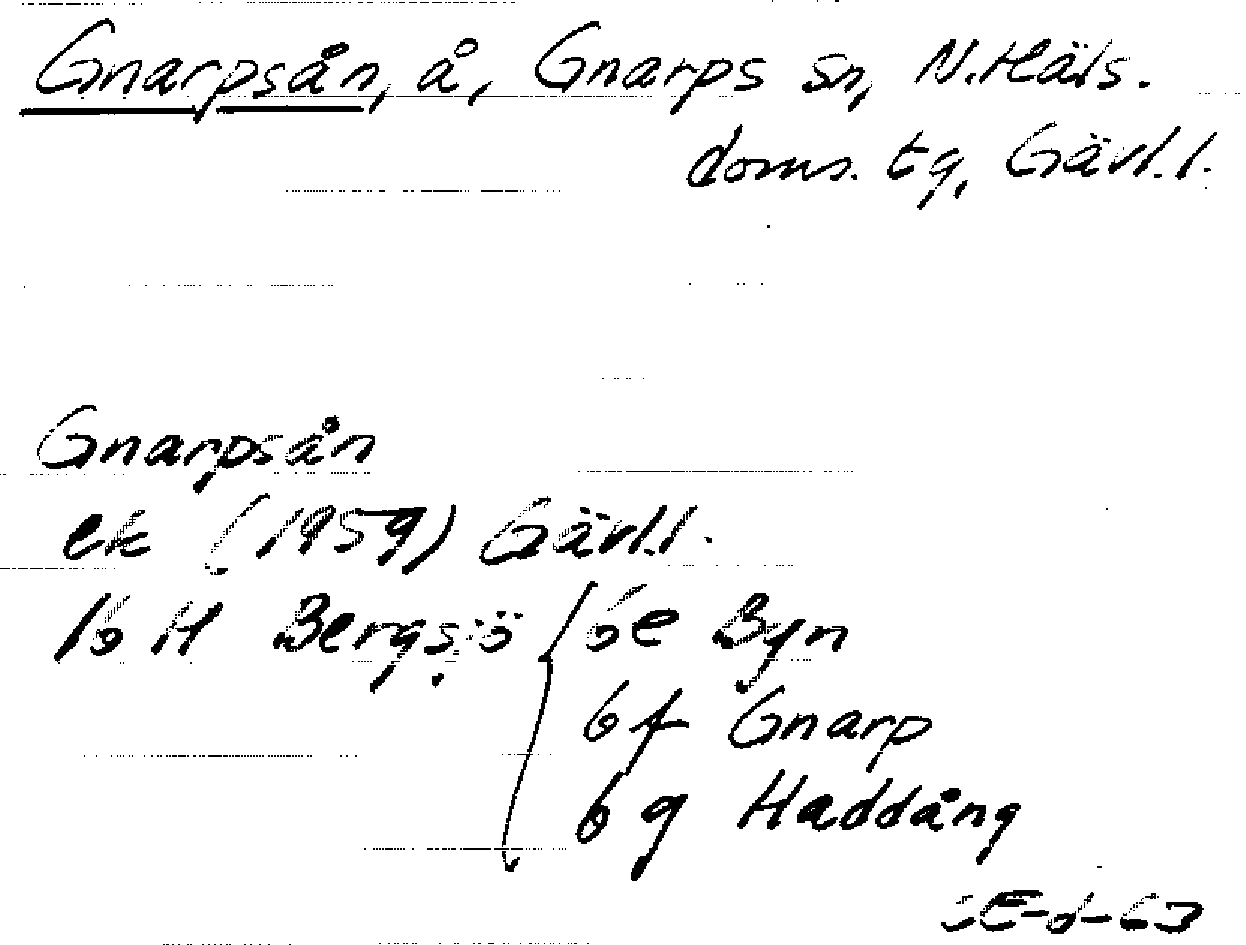 Gnarpsån, å, Gnarps sn, N. Häls.
doms. tg, Gävl. l.
Gnarpsån
ek (1959) Gävl. l.
16 H Bergsjö { 6e Byn
6f Gnarp
6g Haddång